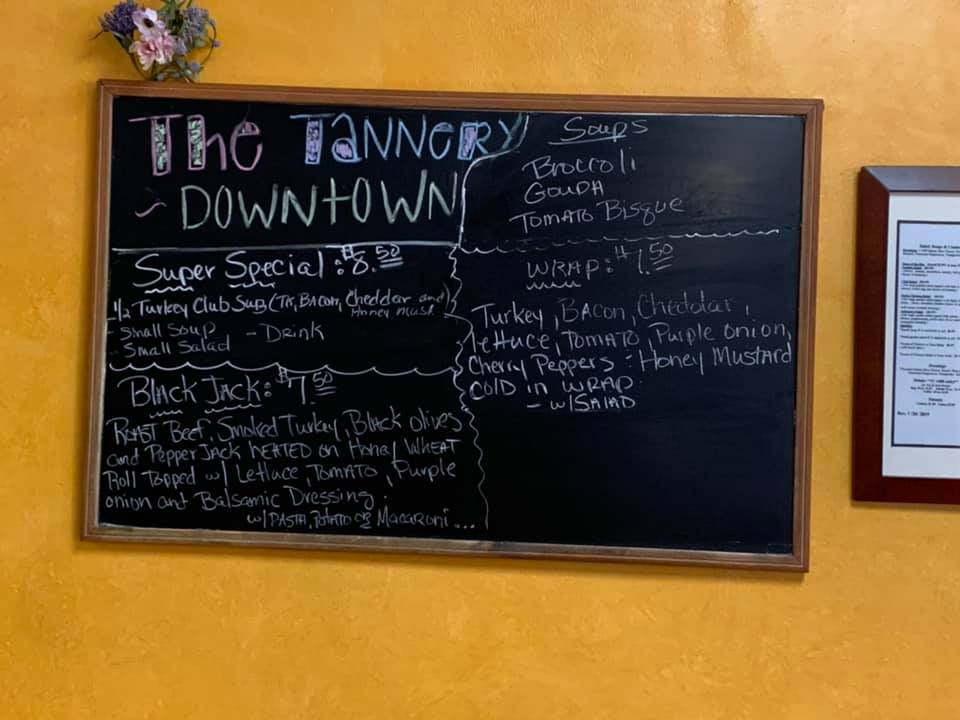 The Tannery
- Downtown
Super Special: $8.50
1/2 Turkey Club Sub (TK, Bacon, Cheddar and
Honey Must
- Small Soup - Drink
- Small Salad
Black Jack: $7.50
Roast Beef, Smoked Turkey, Black olives
and Pepper Jack heated on Honey Wheat
Roll Topped w/ Lettuce, Tomato, Purple
onion and Balsamic Dressing.
w/ Pasta, Potato or Macaroni...
Soups
Broccoli
Gouda
Tomato Bisque
Wrap: $7.50
Turkey, Bacon, Cheddar,
lettuce, Tomato, Purple onion,
Cherry Peppers : Honey Mustard
Cold in Wrap.
- w/ Salad